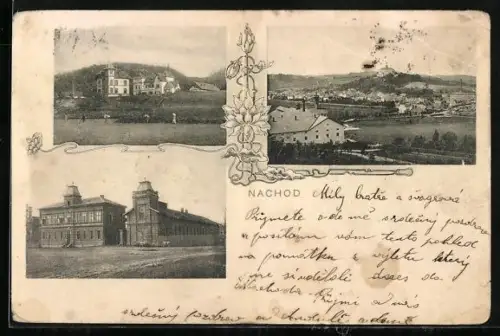 NACHOD
Milý bratře a švagrová
Přijmete odemě srdečný pozdrav
a posílám vám tento pohled
na památku z výletu který
jsme si udělali dnes do
Náchoda. Přijmi a nás
srdečný pozdrav a